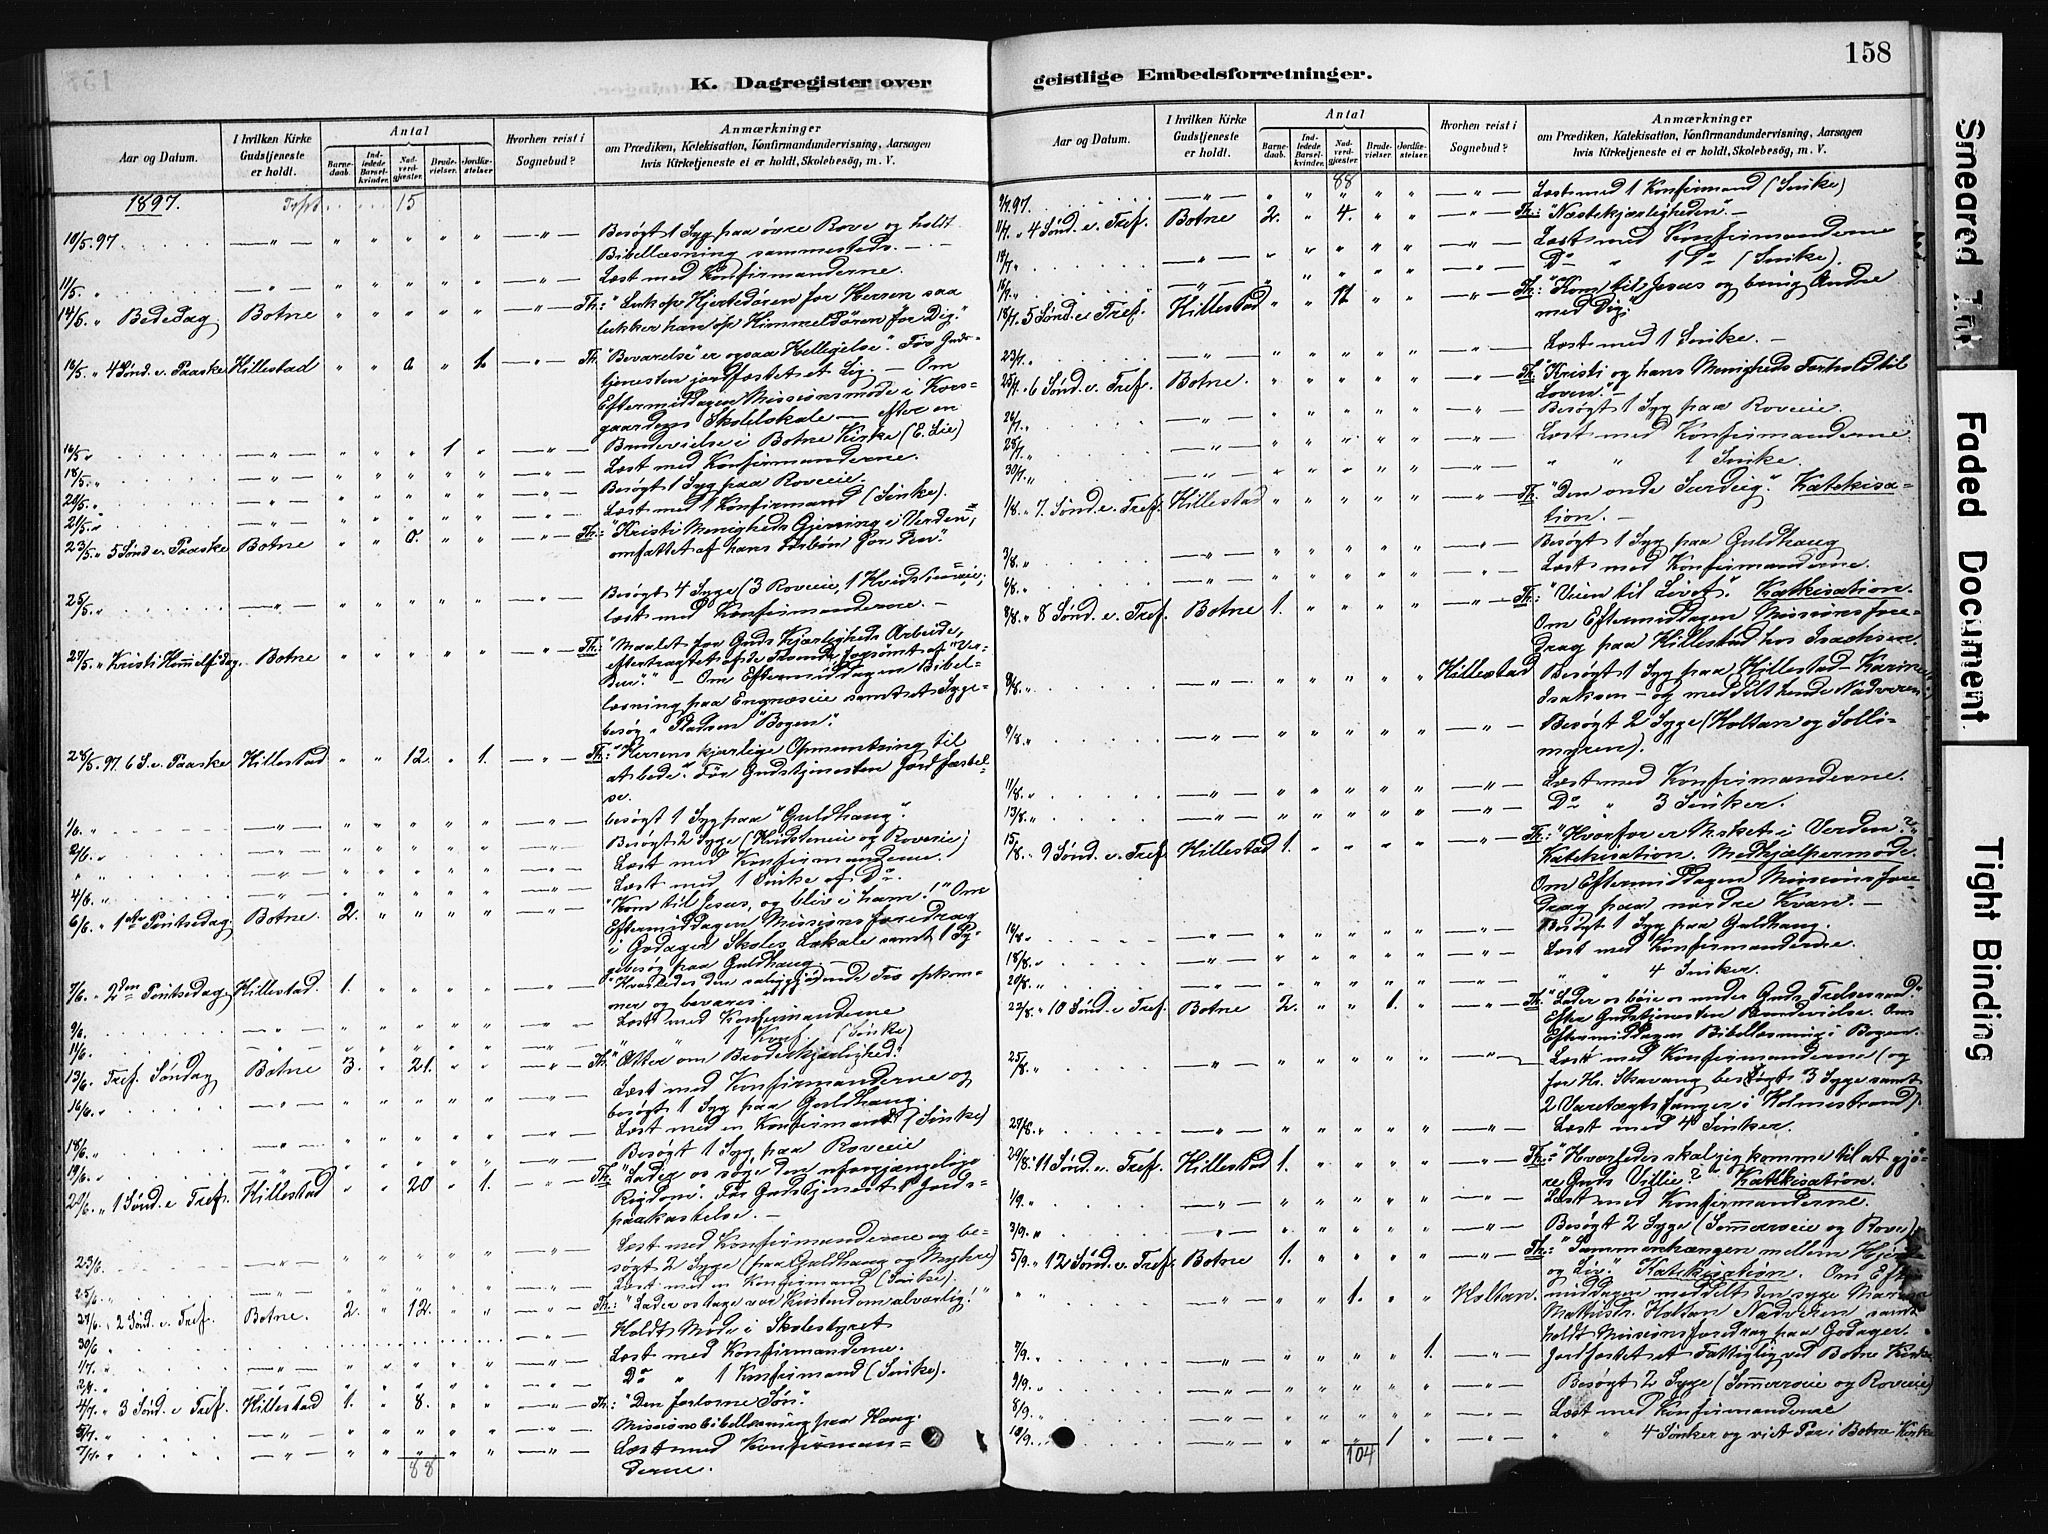 K. Dagregister over
Aar og Datum.
I hvilken Kirke Gudstjeneste er holdt.
Antal
Barnedaab.
Indledede Barselkvinder.
Nadverdgjæster.
Brudevielser.
Jordfæstelser
Hvorhen reist i Sognebud?
Anmærkninger
om Prædiken, Katekisation, Konfirmandundervisning, Aarsagen
hvis Kirketjeneste ei er holdt, Skolebesög, m. V.
1897. 15
10/5 97 Besøgt 1 Syg paa øvre Rove og holdt
Bibellæsning sammesteds. —
11/5 Læst med Konfirmanderne.
14/5 Bededag Botne Th: "Luk op Hjertedøren for Herren saa
lukker han op Himmeldøren for Dig."
16/5 4 Sønd. e. Paaske Hillestad 0 1. Th: "Bevarelse" er ogsaa Helligelse". Før Guds-
tjenesten jordfæstet et Lig. — Om
Eftermiddagen Missionsmøde i Kors-
gaardens Skolelokale — efter en
16/5 1 Brudevielse i Botne Kirke (E. Lie)
18/5 Læst med Konfirmanderne.
20/5 Besøgt 1 Syg paa Roveeie.
21/5 Læst med 1 Konfirmand (Sinke).
23/5 5 Sønd. e. Paaske Botne 0. Th: "Kristi Menigheds Gjerning i Verden,
omfattet af hans Forbøn for den".
25/5 Besøgt 4 Syge (3 Roveeie, 1
læst med Konfirmanderne. —
27/5 Kristi Himmelf.dag Botne Th: "Maalet for Guds Kjærligheds Arbeide,
eftertragtet af de Fromme, forsømt af "Ver-
den". — Om Eftermiddagen Bibel-
læsning paa Engnæseie samt et Syge-
besøg Pladsen "Bogen".
28/5 97. 6 S. e. Paaske Hillestad 12. 1. Th: "Herrens kjærlige Opmuntring til
at bede". Før Gudstjenesten Jordfæstel-
se.
1/6 besøgt 1 Syg paa "Guldhaug".
2/6 Besøgt 2 Syge (Hvidsteneie og Roveeie)
Læst med Konfirmanderne.
4/6 Læst med 1 Sinke af Do.
6/6 1ste Pintsedag Botne. 2. "Kom til Jesus, og bliv i ham!" Om
Eftermiddagen Missionsforedrag
i Godager Skoles Lokale samt 1 Sy-
gebesøg paa Guldhaug. —
7/6 2den Pintsedag Hillestad. 1. "Hvorledes den saliggjørende Tro opkom-
mer og bevares".
9/6 Læst med Konfirmanderne
11/6 1 Konf. (Sinke)
13/6 Tref. Søndag Botne 3. 21. Th: "Atter om Broderkjærlighed".
16/6 Læst med Konfirmanderne og
besøgt 1 Syg paa Guldhaug.
18/6 Læst med en Konfirmand (Sinke)
19/6 Besøgt 1 Syg paa Roveeie
20/6 1 Sønd. e Tref. Hillestad 20 1. Th: "Lader os søge den uforgjængelige
Rigdom". Før Gudstjenest 1 Jords-
paakastelse. —
23/6 Læst med Konfirmanderne og be-
søgt 2 Syge (paa Guldhaug og Myhre)
25/6 Læst med en Konfirmand (Sinke).
27/6 2 Sønd. e. Tref. Botne. 2. 12. Th: "Lader os tage vor Kristendom alvorlig!"
30/6 Holdt Møde i Skolestyret
1/7 Læst med Konfirmanderne.
2/7 Do " 1 Konfirmand (Sinke).
4/7 3 Sønd. e Tref. Hillestad 1. 8. Th: "Den fortorne Søn".
5/7 Missionsbibellæsning paa Haug.
7/7 Læst med Konfirman-
derne.
88
geistlige Embedsforretninger.
158
Aar og Datum.
I hvilken Kirke Gudstjeneste er holdt.
Antal
Barnedaab.
Indledede Barselkvinder.
Nadverdgjæster.
Brudevielser.
Jordfæstelser.
Hvorhen reist i Sognebud?
Anmærkninger
om Prædiken, Katekisation, Konfirmandundervisning, Aarsagen
hvis Kirketjeneste ei er holdt, Skolebesög, m. V.
88
9/7 97. Læst med 1 Konfirmand (Sinke)
11/7 4 Sønd. e. Tref. Botne 2. 4. Th: "Næstekjærligheden". —
14/7 Læst med Konfirmanderne
16/7 Do " 1 Do (Sinke).
18/7 5 Sønd. e Tref. Hillestad 12 Th: "Kom til Jesus og bring Andre
med Dig".
23/7 Læst med 1 Sinke. —
25/7 6 Sønd. e. Tref. Botne. Th: "Kristi og hans Menigheds Forhold til
Loven". —
26/7 Besøgt 1 Syg paa Roveeie.
28/7 Læst med Konfirmanderne
30/7 " " 1 Sinke.
1/8 7. Sønd. e. Tref. Hillestad Th: "Den onde Surdeig". Katekisa-
tion. —
3/8 Besøgt 1 Syg paa Guldhaug
6/8 Læst med Konfirmanderne.
8/8 8 Sønd. e. Tref. Botne 1. Th: "Veien til Livet". Katekisation.
Om Eftermiddagen Missionsfore-
drag paa Hillestad hos Isachsen.
8/8 Hillestad Besøgt 1 Syg paa Hillestad — Karine
Isaksen — og meddelt hende Nadveren
9/8 Besøgt 2 Syge (Holtan og Solli-
myren).
11/8 Læst med Konfirmanderne.
13/8 Do " 3 Sinker.
15/8 9 Sønd. e. Tref. Hillestad 1. Th: "Hvorfor er Mørket i Verden?"
Katekisation. Medhjælpermøde.
Om Eftermiddagen Missionsfore-
drag paa nordre Kvan. —
16/8 Besøgt 1 Syg paa Guldhaug.
18/8 Læst med Konfirmanderne.
20/8 " " 4 Sinker.
22/8 10 Sønd. e. Tref. Botne 2. 1. Th: "Lader os bøie os under Guds Frelsesraad."
Efter Gudstjenesten Brudevielse. Om
Eftermiddagen Bibellæsning i Bogen.
25/8 Læst med Konfirmanderne (og
for Hr. Skavang besøgt 3 Syge samt
2 Varetægtsfanger i Holmestrand).
27/8 Læst med 4 Sinker.
29/8 11 Sønd. e. Tref. Hillestad 1. Th: "Hvorledes skal jeg komme til at gjø-
re Guds Villie?" Katekisation.
1/9 Læst med Konfirmanderne.
3/9 Besøgt 2 Syge (Sommerseie og Rove)
5/9 12 Sønd. e. Tref. Botne 1. Th: "Sammenhængen mellem
og Liv". Katekisation. Om Efter-
1. Holtan. middagen meddelt den syge
Mathisdr. Holtan Nadveren samt
holdt Missionsforedrag paa Godager.
7/9 1. Jordfæstet et Fattiglig ved Botne Kirke
9/9 Besøgt 2 Syge (Sommerseie og Roveeie)
8/9 Læst med Konfirmanderne
10/9 1 " " 4 Sinker og viet Par i Botne Kirke
104
Smeared Ink
Faded Document
Tight Binding